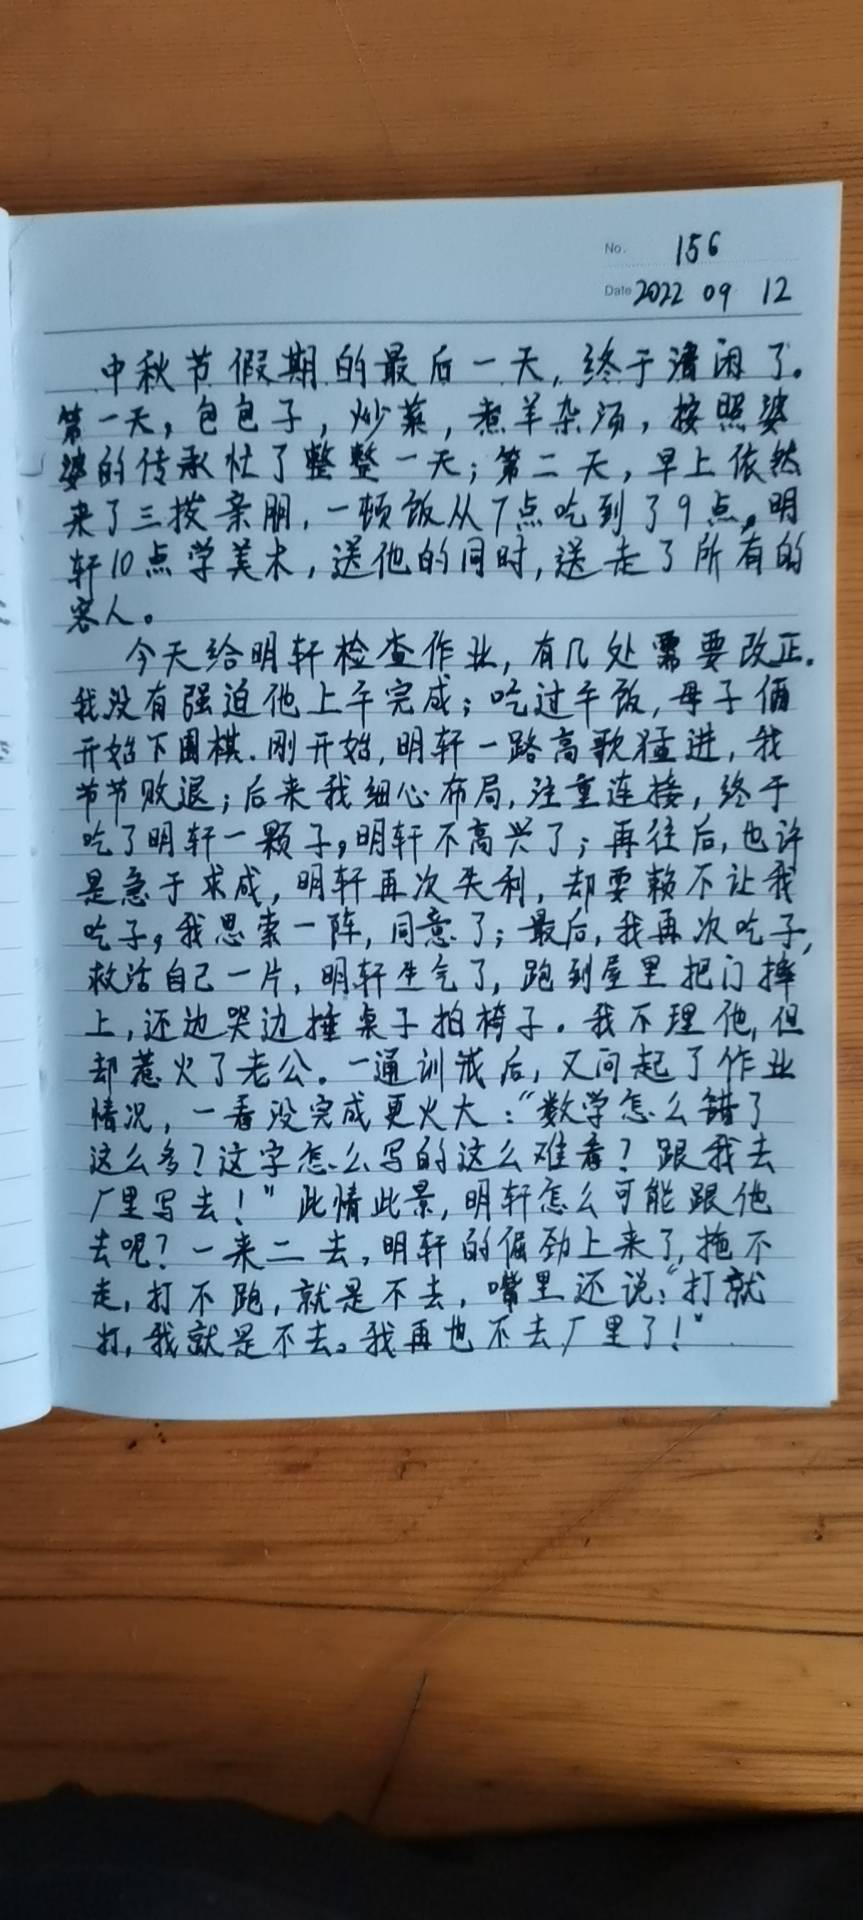 No. 156
Date 2022 09 12
中秋节假期的最后一天,终于清闲了。
第一天,包包子,炒菜,煮羊杂汤,按照婆
婆的传承忙了整整一天;第二天,早上依然
来了三拨亲朋,一顿饭从7点吃到了9点,明
轩10点学美术,送他的同时,送走了所有的
客人。
今天给明轩检查作业,有几处需要改正.
我没有强迫他上午完成;吃过午饭,母子俩
开始下围棋.刚开始,明轩一路高歌猛进,我
节节败退;后来我细心布局,注重连接,终于
吃了明轩一颗子,明轩不高兴了;再往后,也许
是急于求成,明轩再次失利,却耍赖不让我
吃子,我思索一阵,同意了;最后,我再次吃子,
救活自己一片,明轩生气了,跑到屋里把门摔
上,还边哭边捶桌子拍椅子。我不理他,但
却惹火了老公。一通训戒后,又问起了作业
情况,一看没完成更火大:“数学怎么错了
这么多?这字怎么写的这么难看?跟我去
厂里写去!”此情此景,明轩怎么可能跟他
去呢?一来二去,明轩的倔劲上来了,拖不
走,打不跑,就是不去,嘴里还说:“打就
打,我就是不去。我再也不去厂里了!”